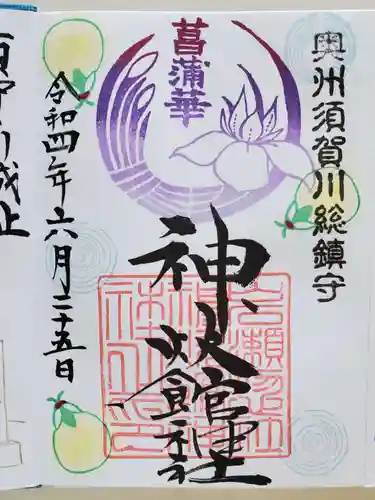 奥州須賀川総鎮守
菖蒲華
神炊館神社
令和四年六月二十五日